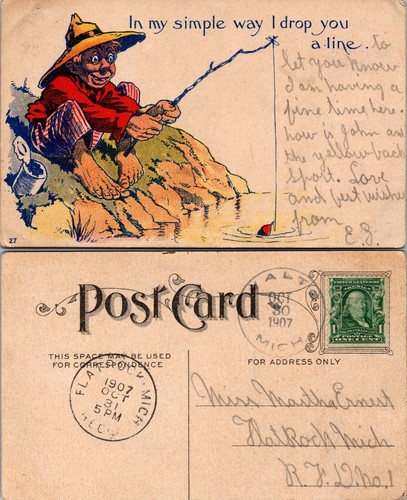 In my simple way I drop you
a line. to
let you know
I am having a
fine time here.
how is John and
the yellow back
Sport. Love
and best wishes
from
E. G.
27
Post Card
THIS SPACE MAY BE USED
FOR CORRESPONDENCE
FOR ADDRESS ONLY
ALTO
OCT
30
1907
MICH
1 1
POSTAGE
ONE CENT
FLAT ROCK, MICH
1907
OCT
31
5 PM
REC'D
Miss Martha Ernest
Flat Rock Mich
R. F. D. No. 1